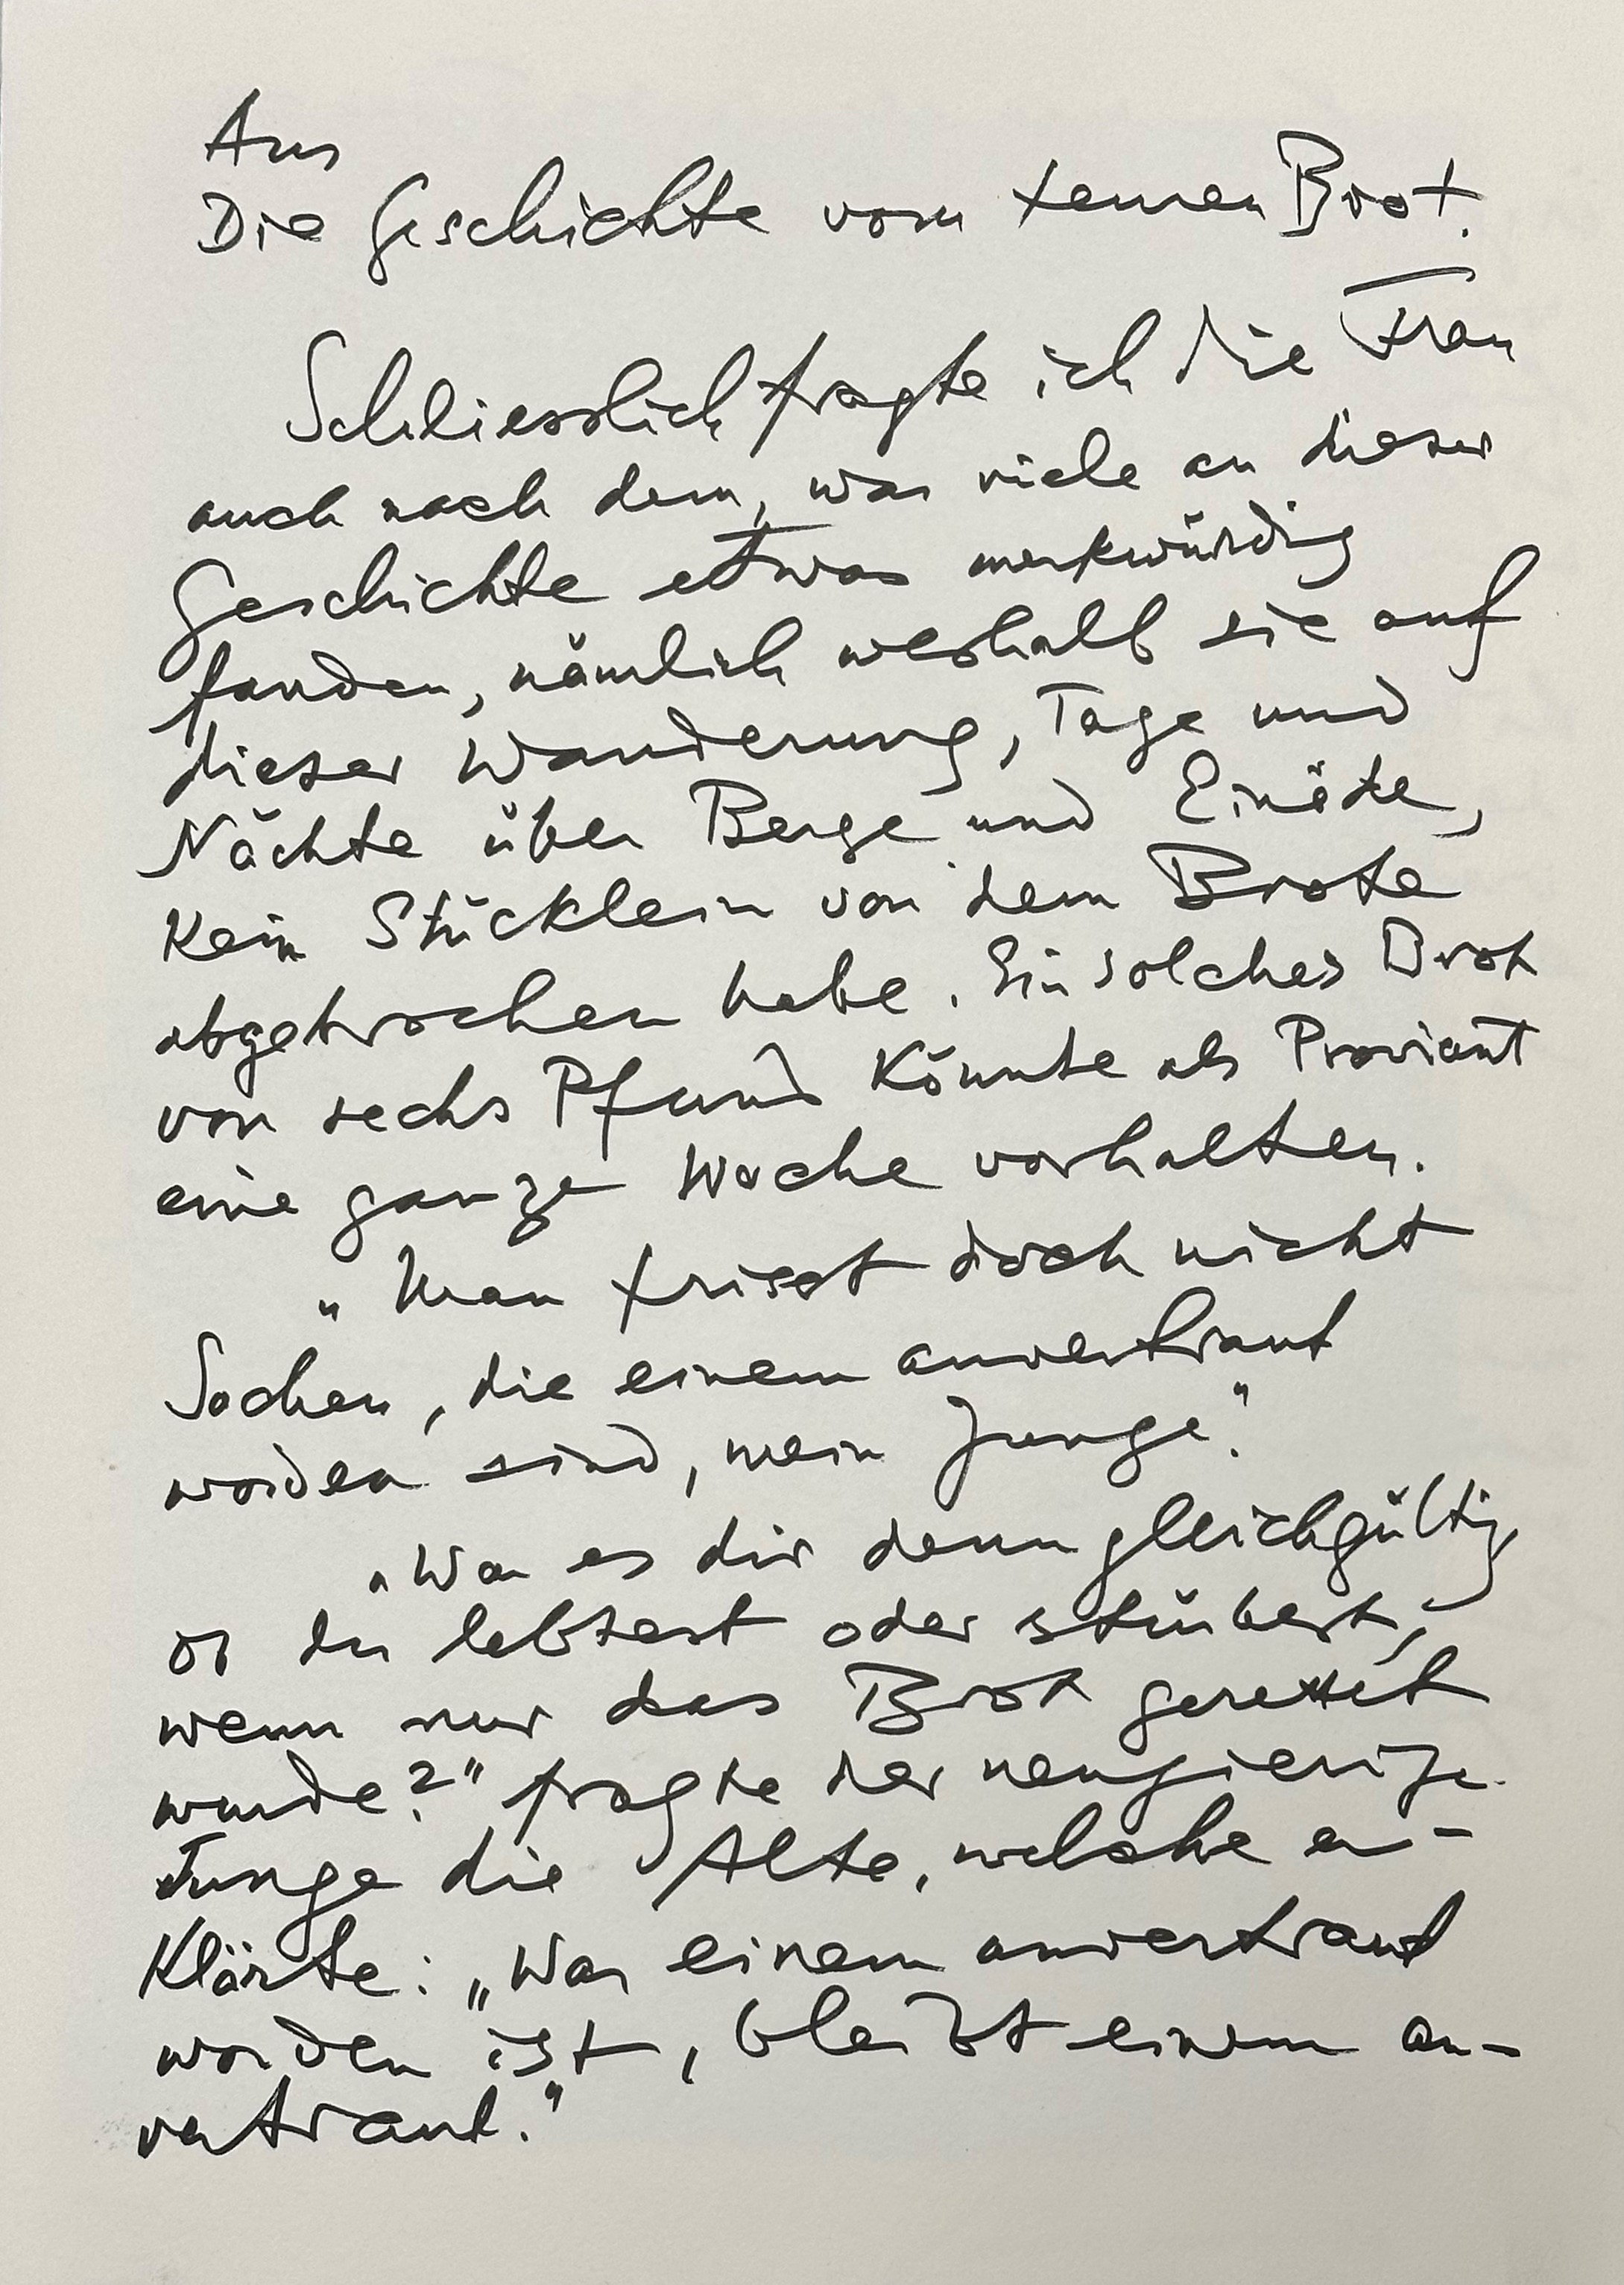 Aus
Die Geschichte vom teuren Brot.
Schliesslich fragte ich die Frau
auch nach dem, was viele an dieser
Geschichte etwas merkwürdig
fanden, nämlich weshalb sie auf
dieser Wanderung, Tage und
Nächte über Berge und Einöde,
kein Stücklein von dem Brote
abgebrochen habe. Ein solches Brot
von sechs Pfund könnte als Proviant
eine ganze Woche vorhalten.
„Man frisst doch nicht
Sachen, die einem anvertraut
worden sind, mein Junge."
„War es dir denn gleichgültig,
ob du lebtest oder stürbest,
wenn nur das Brot gerettet
wurde?" fragte der neugierige
Junge die Alte, welche er-
klärte: „Was einem anvertraut
worden ist, bleibt einem an-
vertraut."